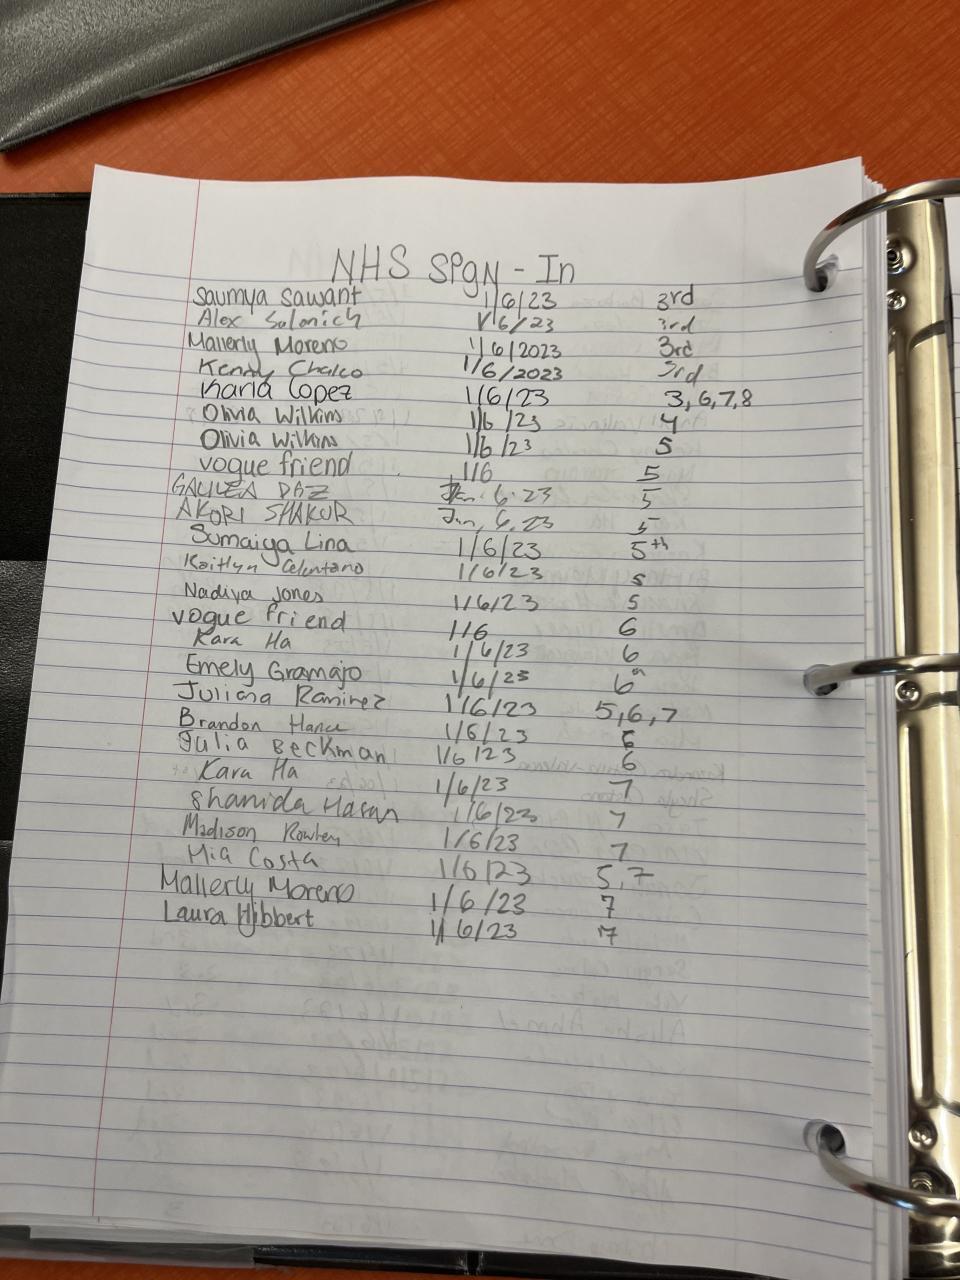 NHS SIgN-In
Saumya Sawant 1/6/23 3rd
Alex Solonich 1/6/23 3rd
Mallerly Moreno 1/6/2023 3rd
Kenny Chalco 1/6/2023 3rd
Karla Lopez 1/6/23 3,6,7,8
Olivia Wilkins 1/6/23 4
Olivia Wilkins 1/6/23 5
vogue friend 1/6 5
GALILEA DAZ Jan. 6. 23 5
AKORI SHAKUR Jan, 6, 23 5
Sumaiya Lina 1/6/23 5th
Kaitlyn Celentano 1/6/23 5
Nadiya Jones 1/6/23 5
vogue friend 1/6 6
Kara Ha 1/6/23 6
Emely Gramajo 1/6/23 6th
Juliana Ramirez 1/6/23 5,6,7
Brandon 1/6/23 6
Julia Beckman 1/6/23 6
Kara Ha 1/6/23 7
Shanida Hasan 1/6/23 7
Madison Rowley 1/6/23 7
Mia Costa 1/6/23 5,7
Mallerly Moreno 1/6/23 7
Laura Hibbert 1/6/23 7